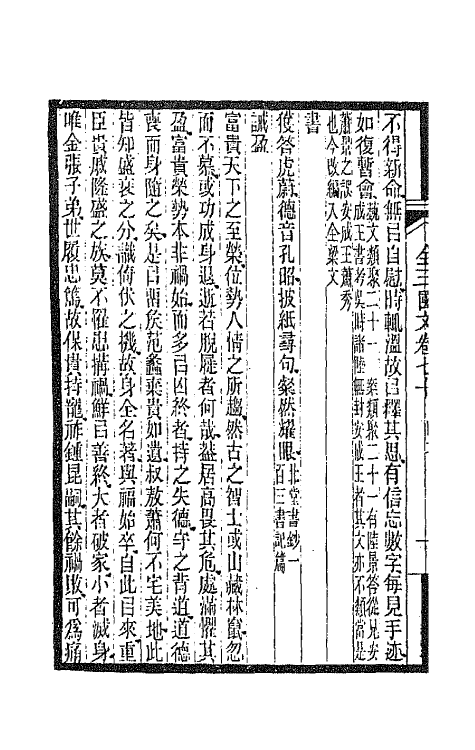 不得新命無㠯自慰時輒溫故㠯釋其思有信忘數字每見手迹
如復暫會藝文類聚二十一 案類聚二十一有陸景答從兄安
成王書考吳時諸陸無封安成王者其文亦不類當是
蕭景之誤安成王蕭秀
也今改編入全梁文
書
彼答虎蔚德音孔昭披紙尋句粲然耀眼北堂書鈔一
百三書記篇
誡盈
富貴天下之至榮位勢人情之所趨然古之智士或山藏林竄忽
而不慕或功成身退逝若脫屣者何哉蓋居高畏其危處滿懼其
盈富貴榮勢本非禍始而多㠯凶終者持之失德守之背道道德
喪而身隨之矣是㠯留矦范蠡棄貴如遺叔敖蕭何不宅美地此
皆知盛衰之分識倚伏之機故身全名著與福始卒自此㠯來重
臣貴戚隆盛之族莫不罹患搆禍鮮㠯善終大者破家小者滅身
唯金張子弟世履忠篤故保貴持寵祚鍾昆嗣其餘禍敗可為痛
全三國文卷七十